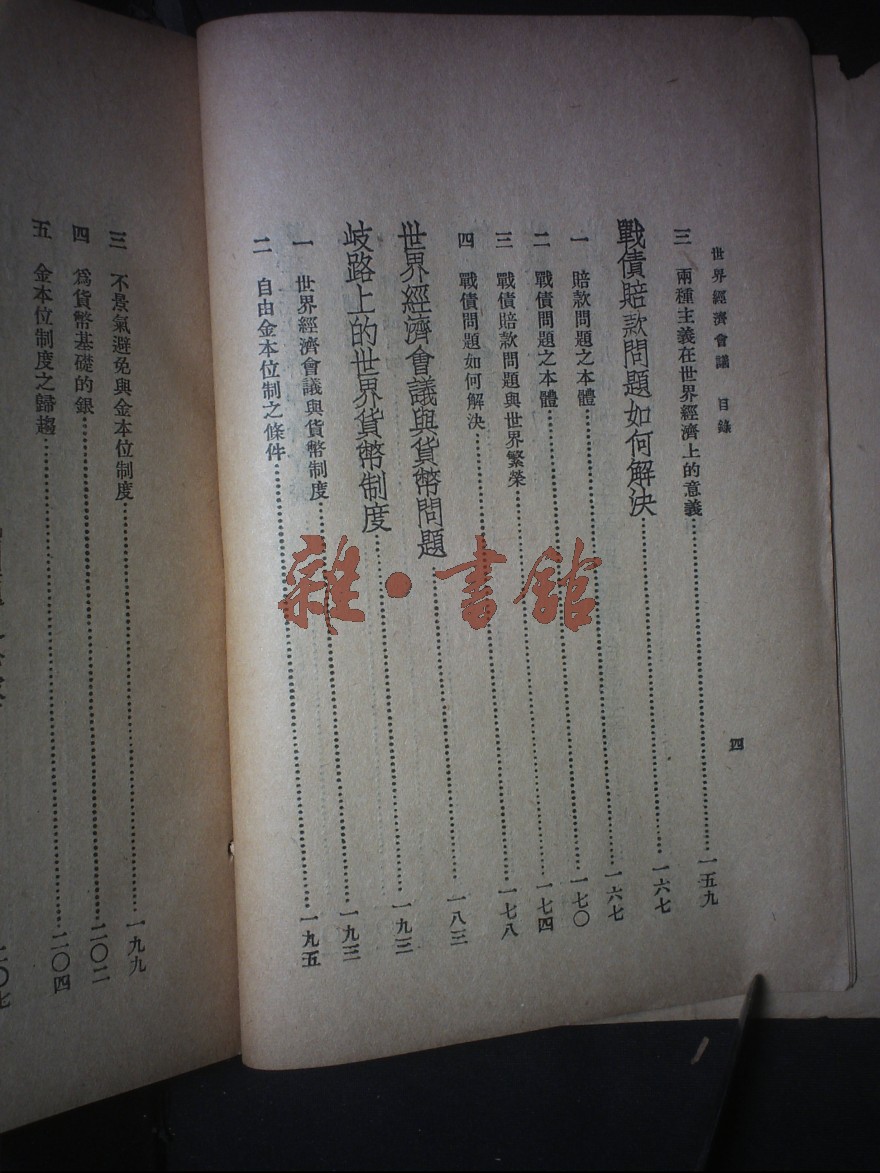 世界經濟會議 目錄 四
三 兩種主義在世界經濟上的意義……一五九
戰債賠款問題如何解決……一六七
一 賠款問題之本體……一六七
二 戰債問題之本體……一七〇
三 戰債賠款問題與世界繁榮……一七四
四 戰債問題如何解決……一七八
世界經濟會議與貨幣問題……一八三
岐路上的世界貨幣制度……一九三
一 世界經濟會議與貨幣制度……一九三
二 自由金本位制之條件……一九五
三 不景氣避免與金本位制度……一九九
四 爲貨幣基礎的銀……二〇二
五 金本位制度之歸趨……二〇四
二〇七
雜·書館